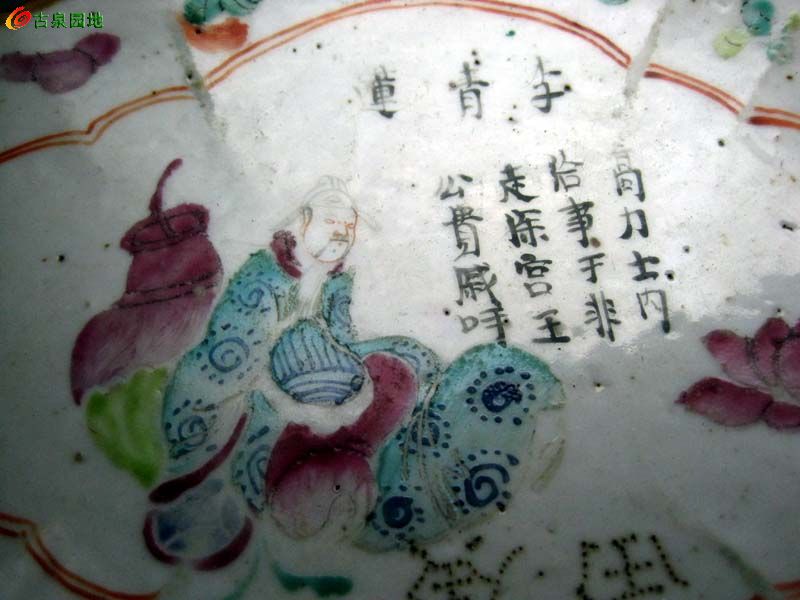 古泉园地
李青蓮
高力士内
给事于非
走深宮王
公貴戚呼